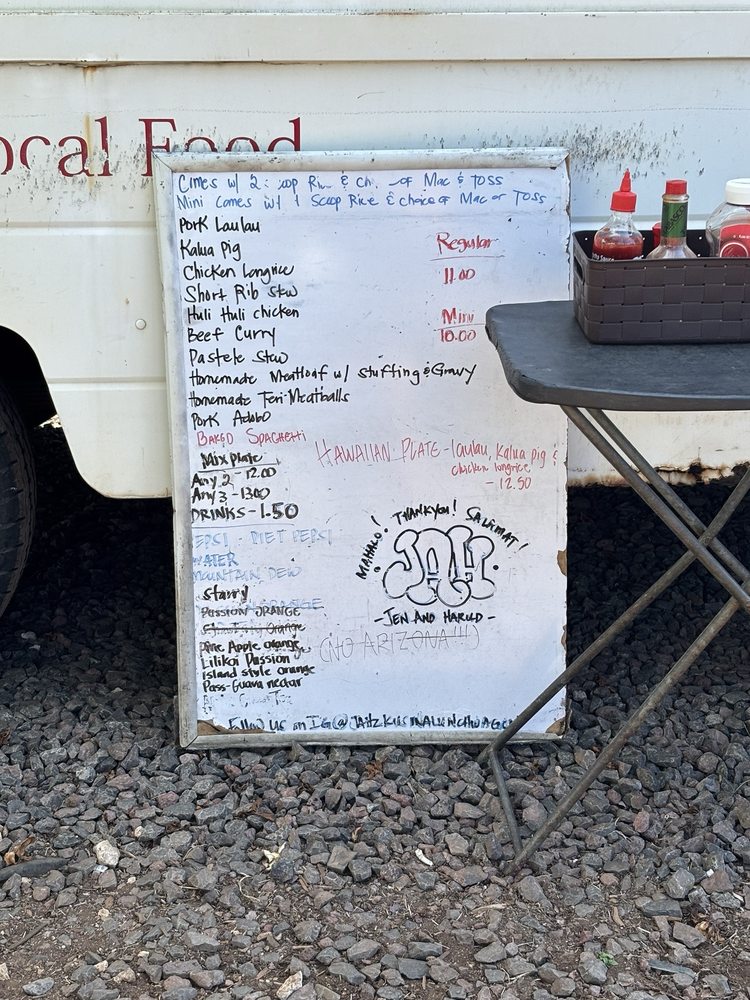 ocal Food
Comes w/ 2 Rice & of Mac & Toss
Mini Comes w/ 1 Scoop Rice & choice of Mac or Toss
Pork Laulau
Kalua Pig
Chicken Longrice
Short Rib Stew
Huli Huli chicken
Beef Curry
Pastele Stew
Homemade Meatloaf w/ Stuffing & Gravy
Homemade Teri-Meatballs
Pork Adobo
Baked Spaghetti
Regular
11.00
Mini
10.00
Mix Plate
Any 2 - 12.00
Any 3 - 13.00
DRINKS - 1.50
HAWAIIAN PLATE - laulau, Kalua pig &
chicken longrice
- 12.50
EPSI - DIET PEPSI
WATER
MOUNTAIN DEW
Starry
PASSION ORANGE
Orange
Pine Apple orange
Lilikoi Passion
Island style orange
Pass-Guava nectar
MAHALO! THANKYOU! SALAMAT!
JAH
- JEN AND HAROLD -
(NO ARIZONA!!!)
Follow us on IG @